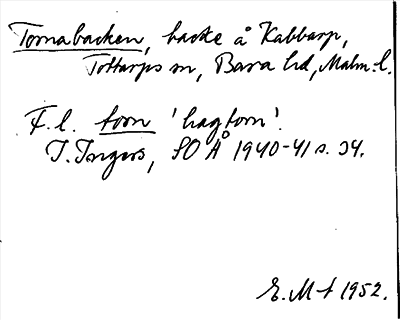 Tornabacken, backe å Kabbarp,
Tottarps sn, Bara hd, Malm. l.
F. l. torn 'hagtorn'.
I. Ingers, SOÅ 1940-41 s. 34.
E. M-t 1952.